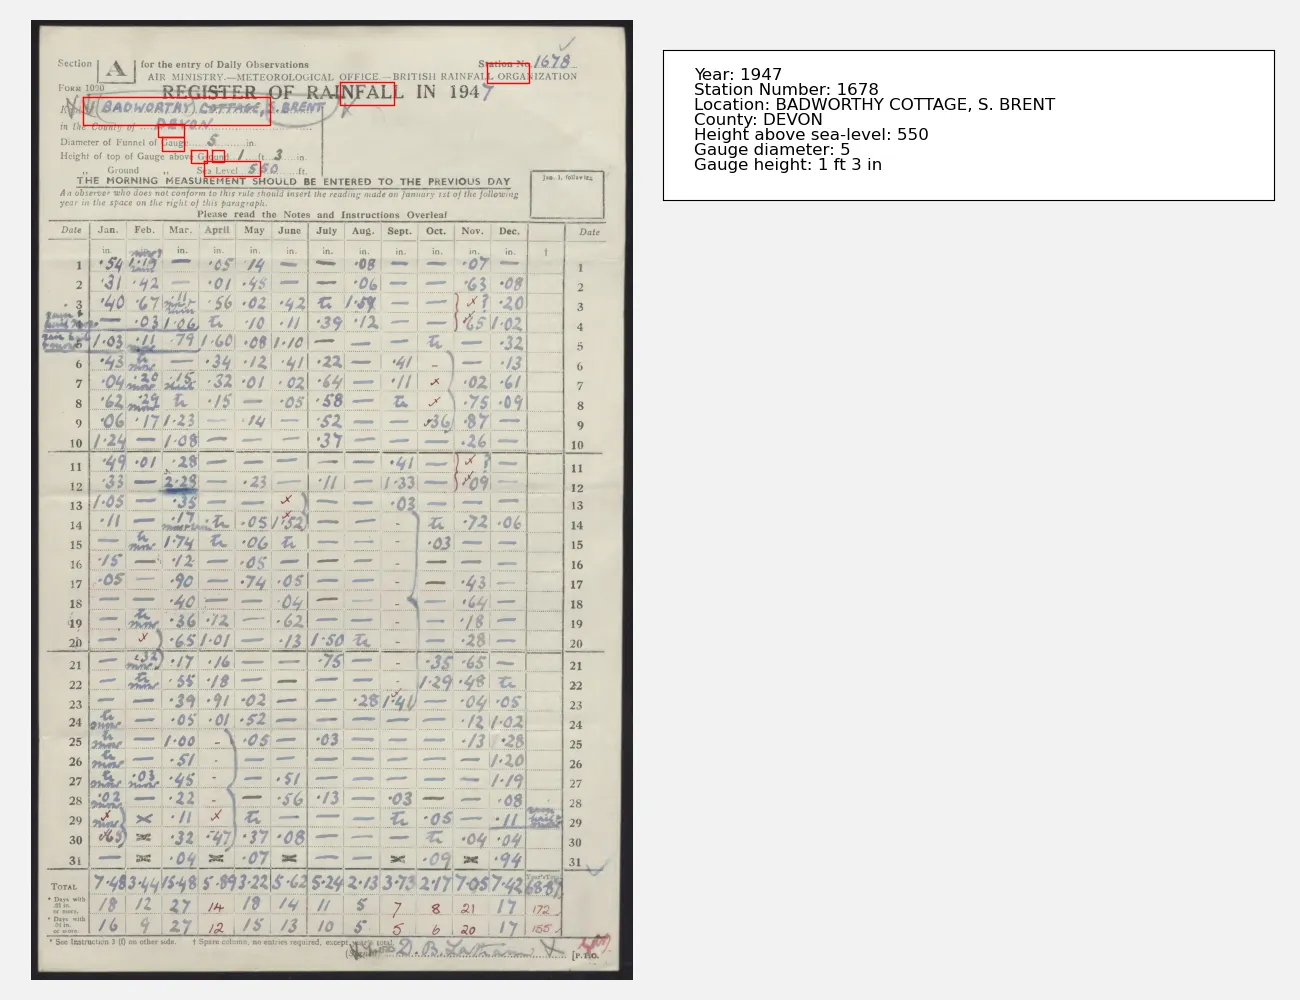 Section A for the entry of Daily Observations Station No. 1678
AIR MINISTRY.—METEOROLOGICAL OFFICE.—BRITISH RAINFALL ORGANIZATION
FORM 1090 REGISTER OF RAINFALL IN 1947
BADWORTHY COTTAGE, S. BRENT
in the County of DEVON
Diameter of Funnel of Gauge 5 in.
Height of top of Gauge above Ground 1 ft. 3 in.
„ Ground „ Sea Level 550 ft.
THE MORNING MEASUREMENT SHOULD BE ENTERED TO THE PREVIOUS DAY
Jan. 1. following
An observer who does not conform to this rule should insert the reading made on January 1st of the following
year in the space on the right of this paragraph.
Please read the Notes and Instructions Overleaf
Date Jan. Feb. Mar. April May June July Aug. Sept. Oct. Nov. Dec. Date
in. in. in. in. in. in. in. in. in. in. in. †
1 ·54 — ·05 ·14 — — ·08 — — ·07 — 1
2 ·31 ·42 — ·01 ·45 — — ·06 — — ·63 ·08 2
3 ·40 ·67 ·11 ·56 ·02 ·42 tr 1·59 — — x ? ·20 3
4 — ·03 1·06 tr ·10 ·11 ·39 ·12 — — ·65 1·02 4
5 1·03 ·11 ·79 1·60 ·08 1·10 — — — tr — ·32 5
6 ·43 tr — ·34 ·12 ·41 ·22 — ·41 - — ·13 6
7 ·04 ·20 ·15 ·32 ·01 ·02 ·64 — ·11 x ·02 ·61 7
8 ·62 ·29 tr ·15 — ·05 ·58 — tr x ·75 ·09 8
9 ·06 ·17 1·23 — ·14 — ·52 — — ·36 ·87 — 9
10 1·24 — 1·08 — — — ·37 — — — ·26 — 10
11 ·49 ·01 ·28 — — — — — ·41 — x ? — 11
12 ·33 — 2·28 — ·23 — ·11 — 1·33 — ·09 — 12
13 1·05 — ·35 — — x — — ·03 — — — 13
14 ·11 — ·17 tr ·05 1·52 — — - tr ·72 ·06 14
15 — tr 1·74 tr ·06 tr — — - ·03 — — 15
16 ·15 — ·12 — ·05 — — — - — — — 16
17 ·05 — ·90 — ·74 ·05 — — - — ·43 — 17
18 — — ·40 — — ·04 — — - — ·64 — 18
19 — tr ·36 ·12 — ·62 — — - — ·18 — 19
20 — x ·65 1·01 — ·13 1·50 tr - — ·28 — 20
21 — ·32 ·17 ·16 — — ·75 — - ·35 ·65 — 21
22 — tr ·55 ·18 — — — — - 1·29 ·48 tr 22
23 — — ·39 ·91 ·02 — — ·28 1·41 — ·04 ·05 23
24 tr — ·05 ·01 ·52 — — — — — ·12 1·02 24
25 tr — 1·00 - ·05 — ·03 — — — ·13 ·28 25
26 tr — ·51 - — — — — — — — 1·20 26
27 tr ·03 ·45 - — ·51 — — — — — 1·19 27
28 ·02 — ·22 - — ·56 ·13 — ·03 — — ·08 28
29 x x ·11 x tr — — — tr ·05 — ·11 29
30 x ·32 ·47 ·37 ·08 — — — tr ·04 ·04 30
31 — x ·04 x ·07 x — — x ·09 x ·94 31
TOTAL 7·48 3·44 15·48 5·89 3·22 5·62 5·24 2·13 3·73 2·17 7·05 7·42 Year's Total 68·87
* Days with ·01 in. or more. 18 12 27 14 18 14 11 5 7 8 21 17 172
* Days with ·04 in. or more. 16 9 27 12 15 13 10 5 5 6 20 17 155
* See Instruction 3 (f) on other side. † Spare column, no entries required, except year's total.
[P.T.O.
Year: 1947
Station Number: 1678
Location: BADWORTHY COTTAGE, S. BRENT
County: DEVON
Height above sea-level: 550
Gauge diameter: 5
Gauge height: 1 ft 3 in